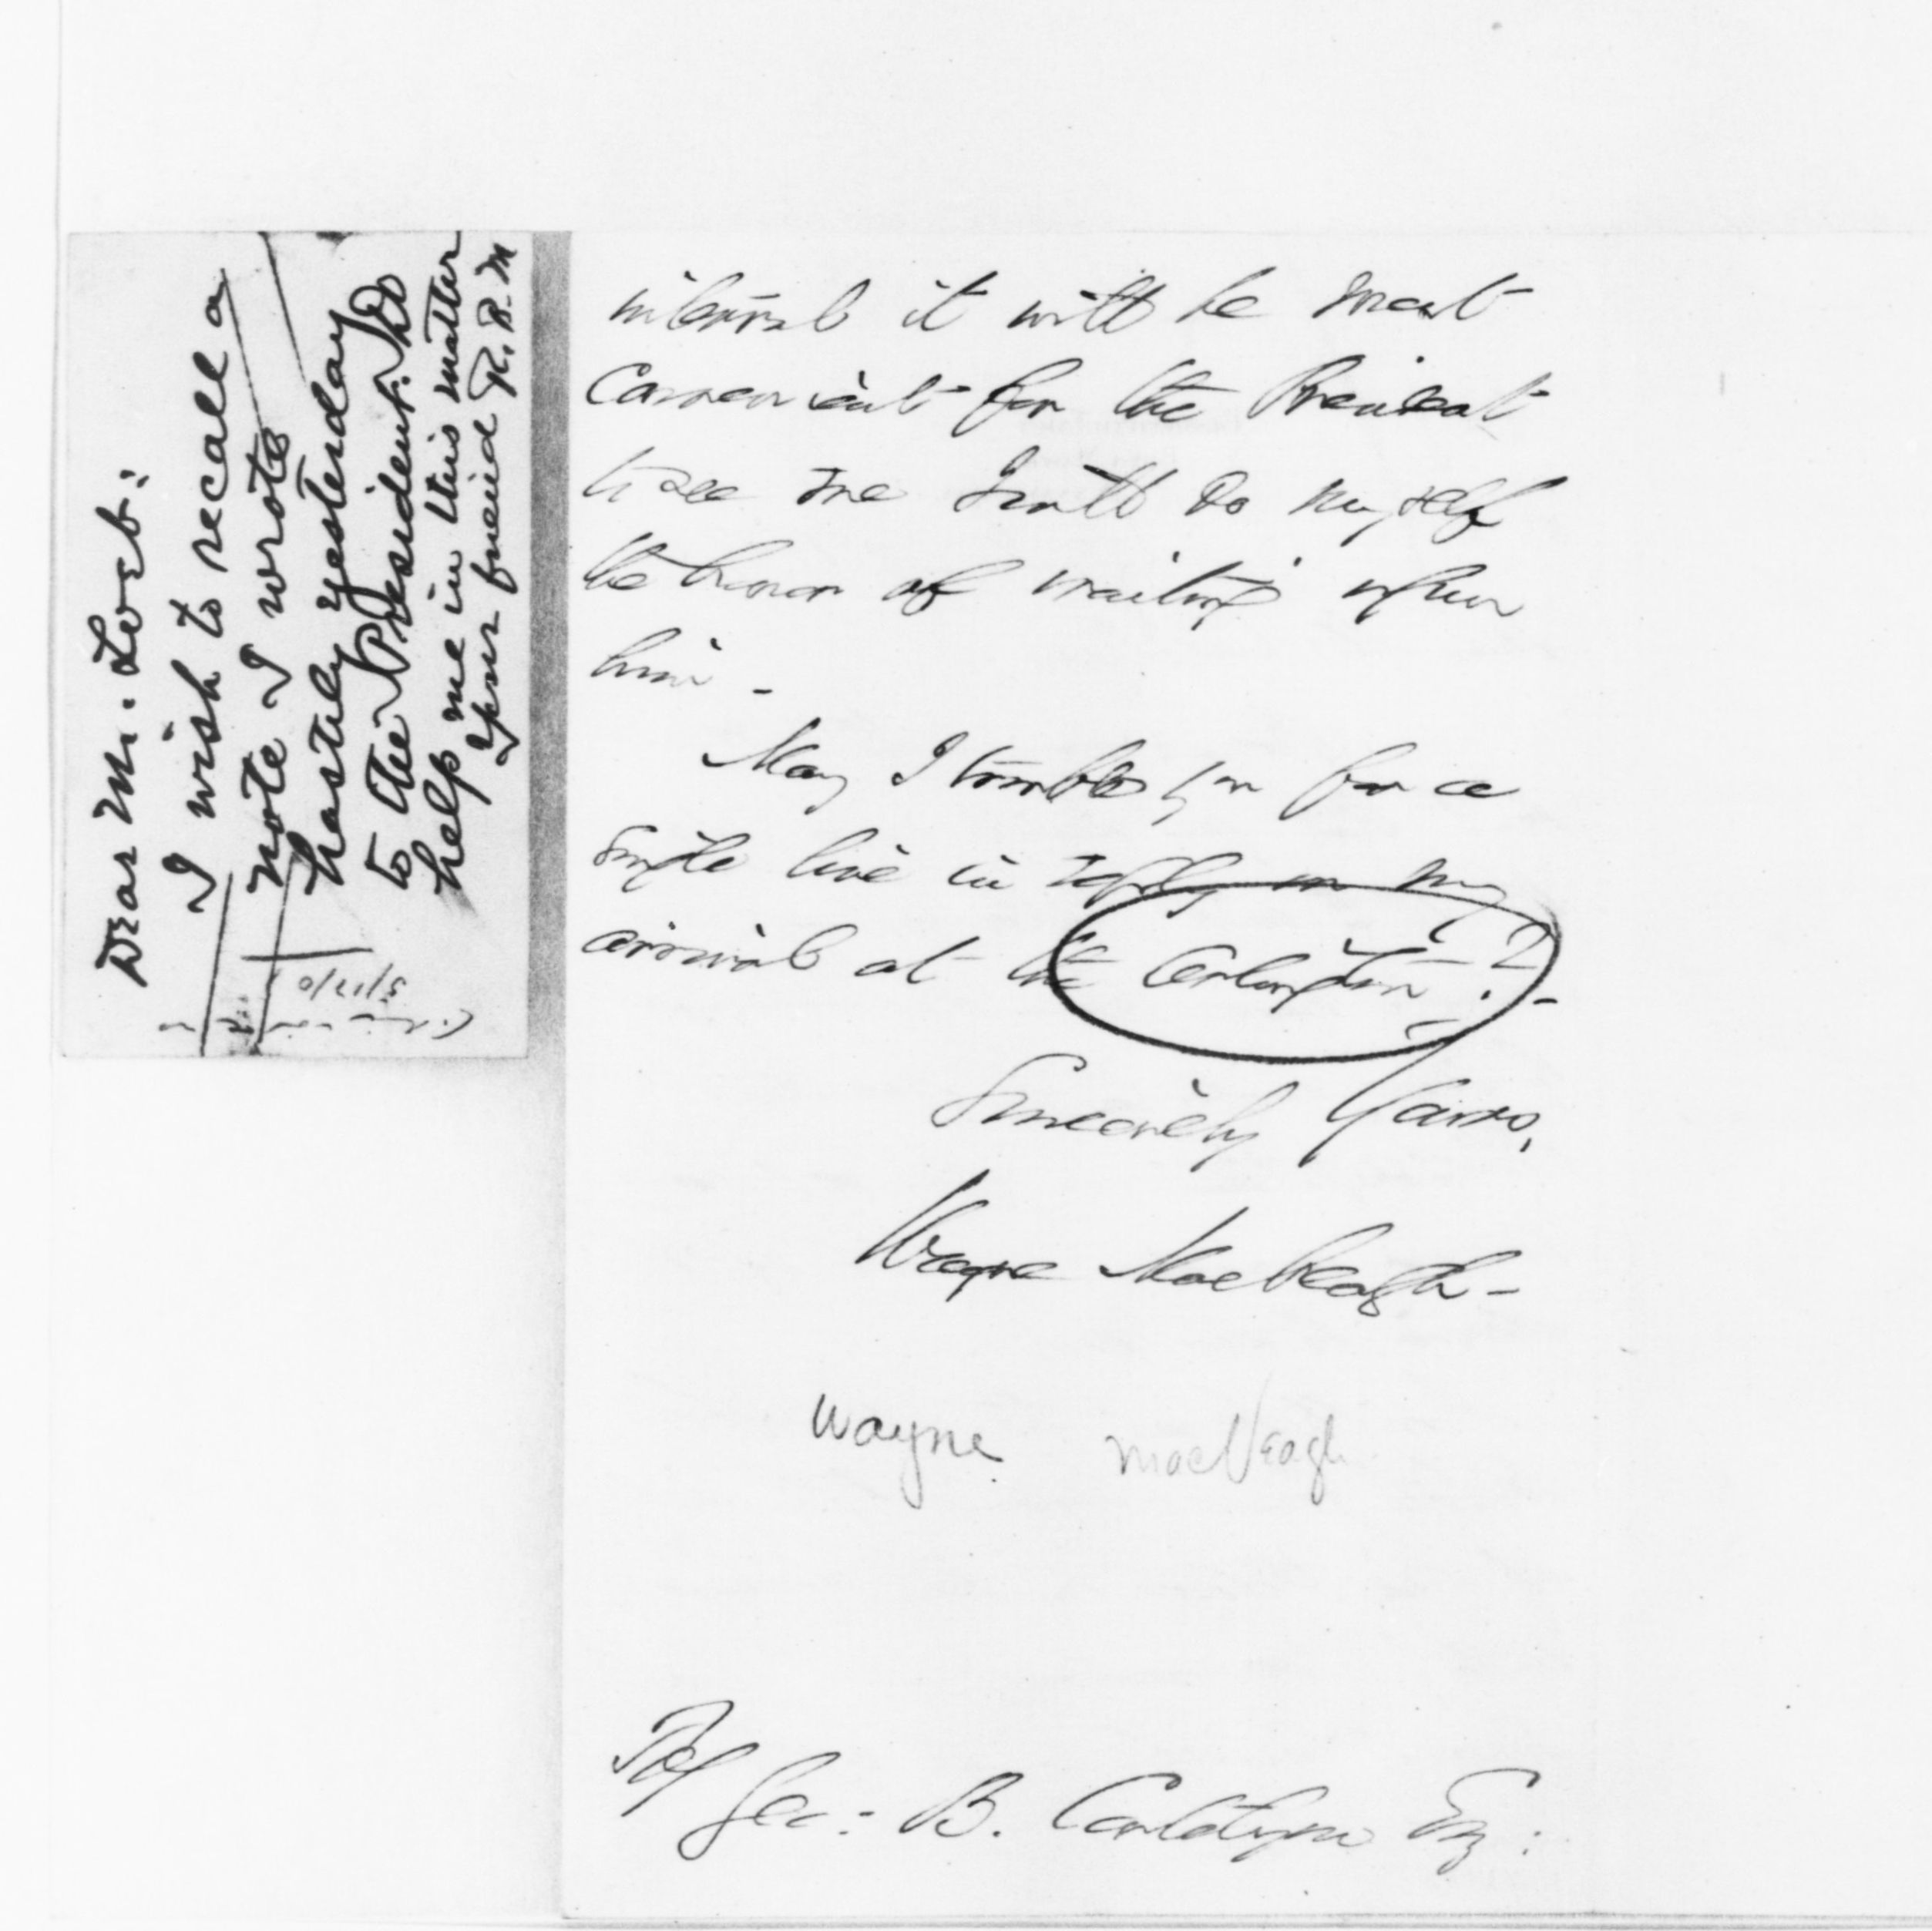 Dear Mr. Loeb:
I wish to recall a
note I wrote
hastily yesterday
to the President. Do
help me in this matter
Your friend R. B. M
interval it will be most
convenient for the President
to see me I will do myself
the honor of waiting upon
him -
May I trouble you for a
single line in reply on my
arrival at the Arlington? -
Sincerely Yours,
Wayne MacVeagh -
Wayne MacVeagh
To/
Geo: B. Cortelyou Esq: